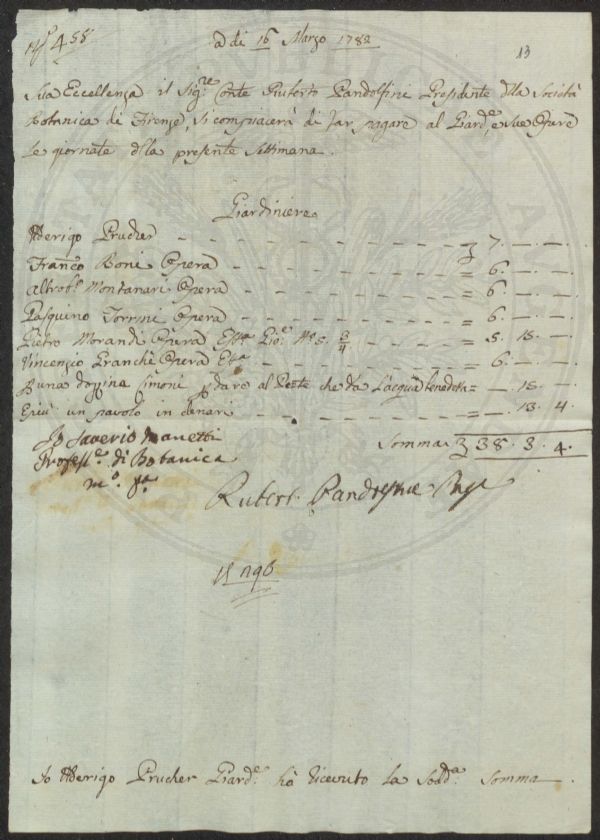 N.º 455
a di 16 Marzo 1782
13
Sua Eccellenza il Sig.re Conte Ruberto Pandolfini Presidente dlla Società
Botanica di Firenze, si compiacerà di far pagare al Giard.e, e sue Opere
le giornate dlla presente Settimana.
Giardiniere
Aderigo Prucher — — 7. — —
Franc.o Boni Opera — — 6. — —
Opera — — 6. — —
Pasquino Torrini Opera — — 6. — —
Pietro Morandi Opera Est.a Gio.e N.o 5 3/4 — — 5. 15. —
Vincenzio Franchi Opera Est.a — — 6. — —
P una dozzina limoni p dare al Prete che dà l'acqua benedetta = — 15. —
E più un pavolo in denari — — 13. 4
Io Saverio Manetti
Profess.re di Botanica
m.o p.a
Somma 38. 3. 4.
Rubert. Pandolfini
Io Aderigo Prucher Giard.e hò ricevuto la Sodd.a Somma